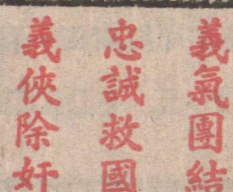 義氣團結
忠誠救國
義俠除奸